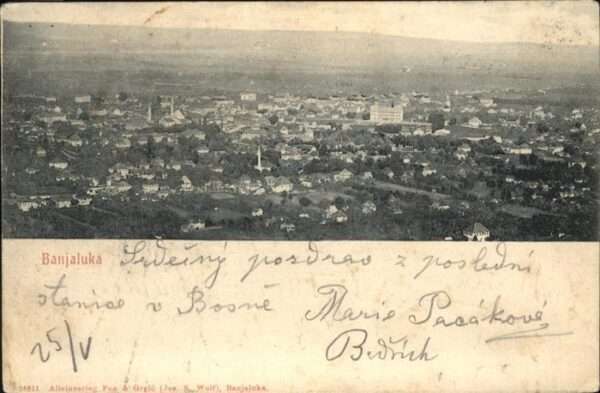 Banjaluka Srdečný pozdrav z poslední
stanice v Bosně Marie Pacákové
25/V Bedřich
Alleinverlag Fon & Grgić (Jos. N. Wolf), Banjaluka.